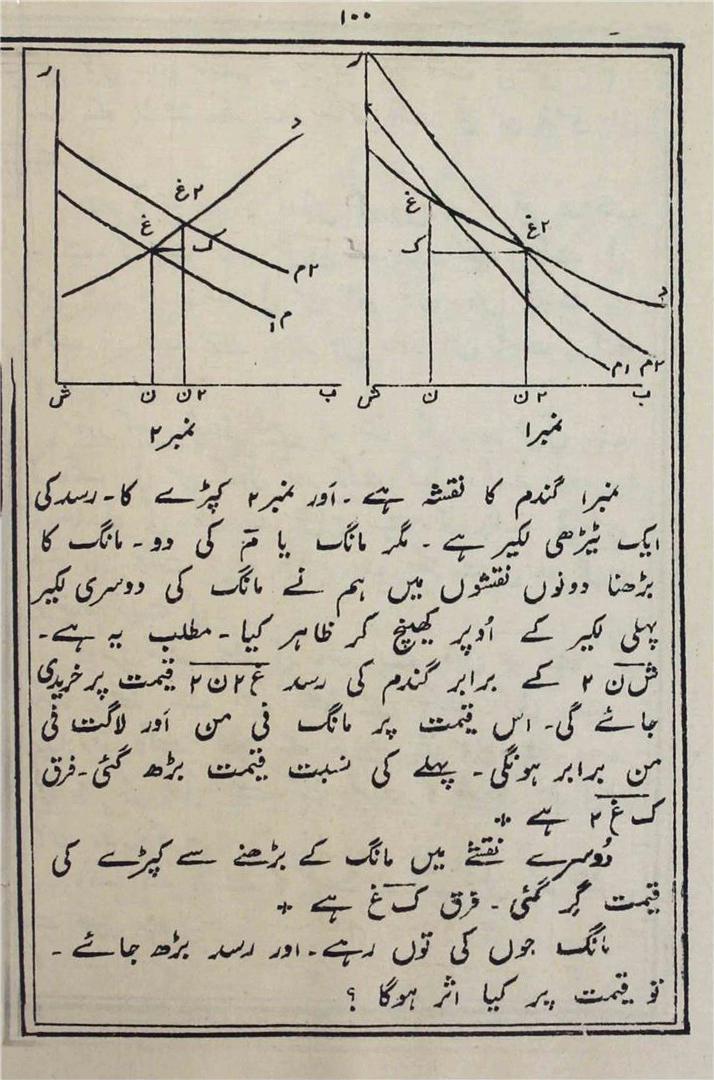 ۱۰۰
ر
د
غ ۲
غ
ک
م ۲
م ۱
ش
ن
ن ۲
ب
نمبر ۲
ر
غ
غ ۲
ک
د
م ۱
م ۲
ش
ن
ن ۲
ب
نمبر ۱
نمبر ۱ گندم کا نقشہ ہے ۔ اَور نمبر ۲ کپڑے کا ۔ رسد کی
ایک ٹیڑھی لکیر ہے ۔ مگر مانگ یا م کی دو ۔ مانگ کا
بڑھنا دونوں نقشوں میں ہم نے مانگ کی دوسری لکیر
پہلی لکیر کے اُوپر کھینچ کر ظاہر کیا ۔ مطلب یہ ہے ۔
ش ن ۲ کے برابر گندم کی رسد غ ۲ ن ۲ قیمت پر خریدی
جائے گی ۔ اس قیمت پر مانگ فی من اَور لاگت فی
من برابر ہونگی ۔ پہلے کی نسبت قیمت بڑھ گئی ۔ فرق
ک غ ۲ ہے *
دُوسرے نقشے میں مانگ کے بڑھنے سے کپڑے کی
قیمت گِر گئی ۔ فرق ک غ ہے *
مانگ جوں کی توں رہے ۔ اور رسد بڑھ جائے ۔
تو قیمت پر کیا اثر ہوگا ؟